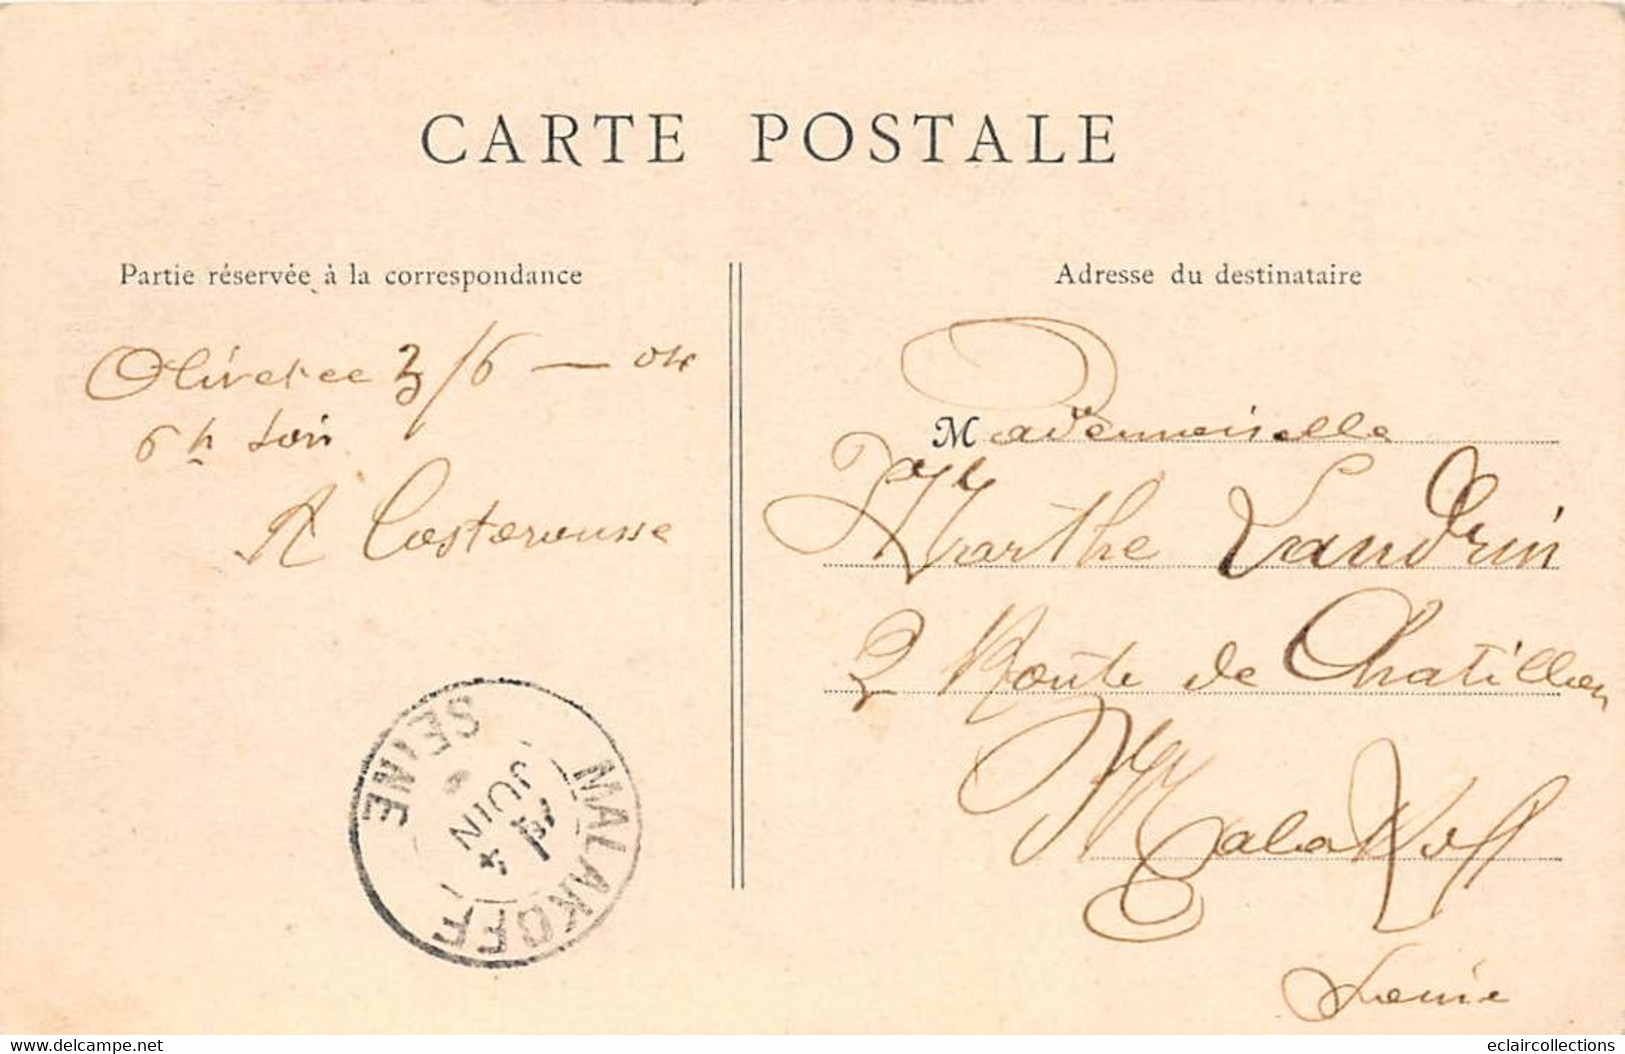 CARTE POSTALE
Partie réservée à la correspondance
Adresse du destinataire
3/6 — 04
6 h soir
A Costerousse
Mademoiselle
Marthe Landrin
2 Route de Chatillon
Malakoff
Seine
MALAKOFF
SEINE
JUIN
www.delcampe.net
eclaircollections